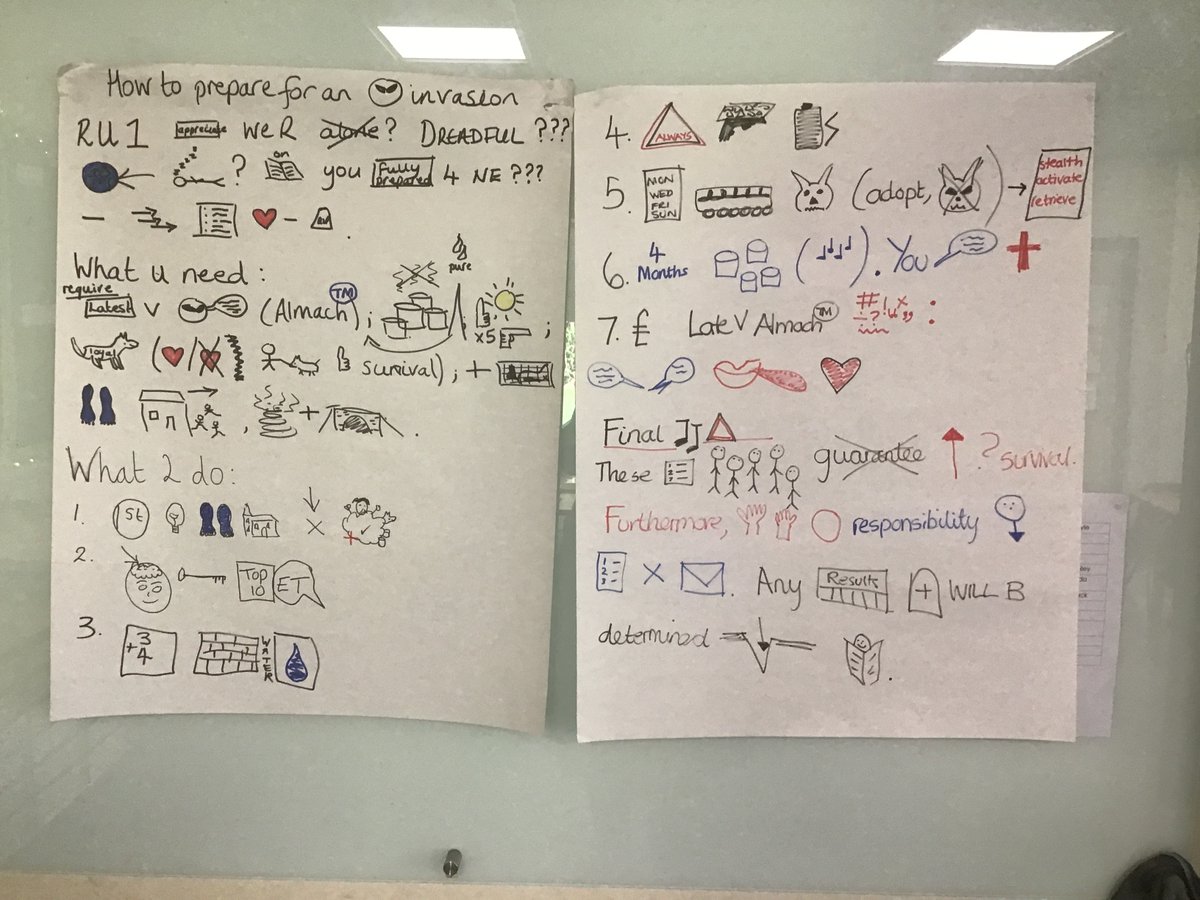 How to prepare for an invasion
RU1 appreciate we R alone? DREADFUL ???
zzzz ? on you Fully prepared 4 NE ???
What u need:
pure
require
Latest V (Almach) TM ; ;
x5 EP
loyal ( / survival); +
, + .
What 2 do:
1. 1st x
2. TOP 10 ET
3. +3 4 WATER
4. ALWAYS
5. MON WED FRI SUN (adopt, ) → stealth activate retrieve
6. 4 Months ( ). You +
7. £ Late V Almach TM #! :
Final
These 1 2 3 guarantee ? survival.
Furthermore, responsibility
1 2 3 x . Any Results + WILL B
determined .